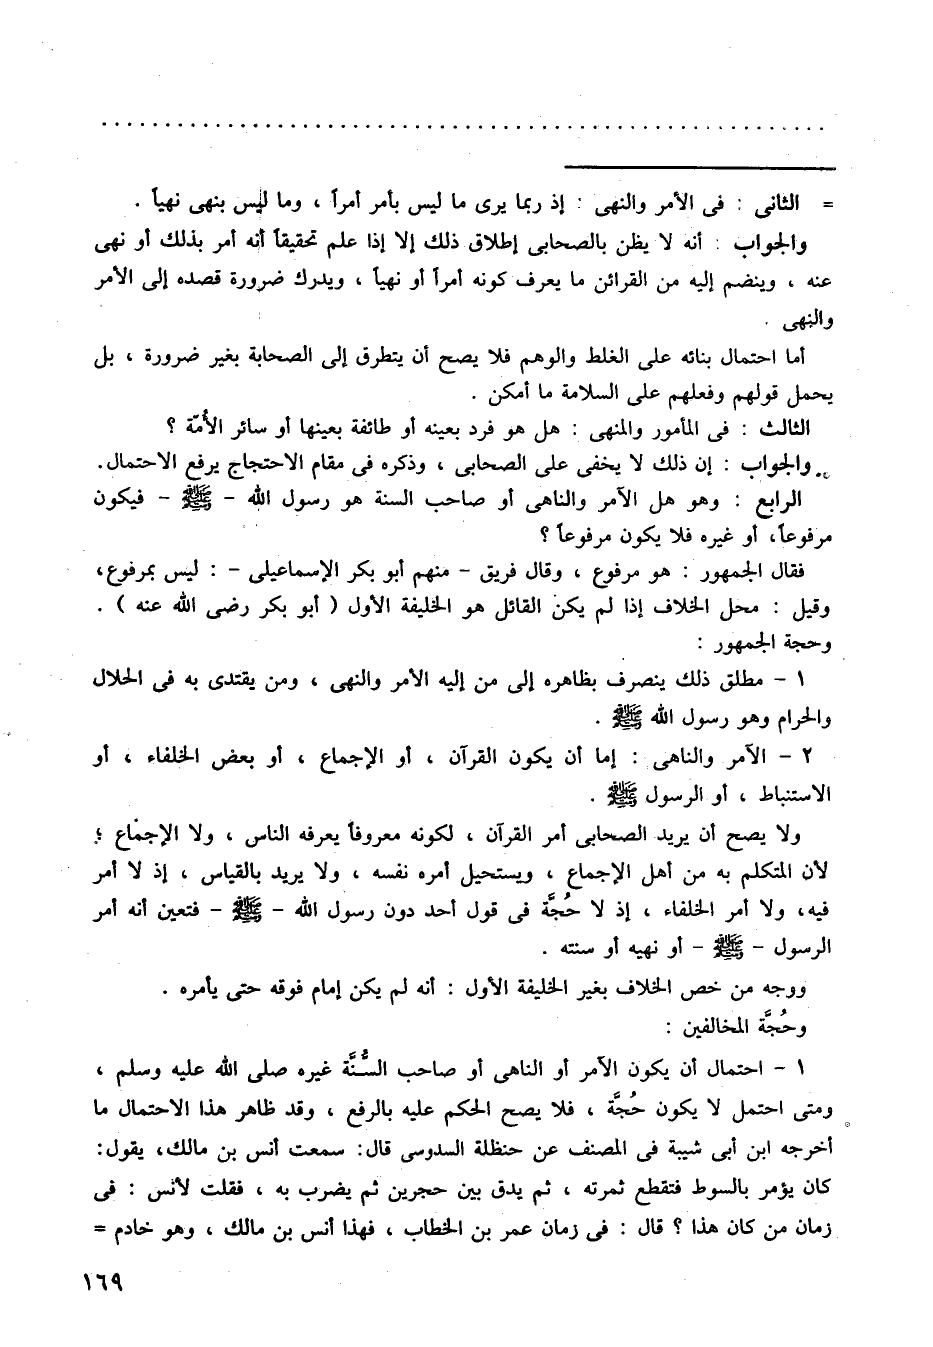 = الثانى : فى الأمر والنهى : إذ ربما يرى ما ليس بأمر أمراً ، وما ليس بنهى نهياً .
والجواب : أنه لا يظن بالصحابى إطلاق ذلك إلا إذا علم تحقيقاً أنه أمر بذلك أو نهى
عنه ، وينضم إليه من القرائن ما يعرف كونه أمراً أو نهياً ، ويدرك ضرورة قصده إلى الأمر
والنهى .
أما احتمال بنائه على الغلط والوهم فلا يصح أن يتطرق إلى الصحابة بغير ضرورة ، بل
يحمل قولهم وفعلهم على السلامة ما أمكن .
الثالث : فى المأمور والمنهى : هل هو فرد بعينه أو طائفة بعينها أو سائر الأُمّة ؟
والجواب : إن ذلك لا يخفى على الصحابى ، وذكره فى مقام الاحتجاج يرفع الاحتمال.
الرابع : وهو هل الآمر والناهى أو صاحب السنة هو رسول الله - ﷺ - فيكون
مرفوعاً، أو غيره فلا يكون مرفوعاً ؟
فقال الجمهور : هو مرفوع ، وقال فريق - منهم أبو بكر الإسماعيلى - : ليس بمرفوع،
وقيل : محل الخلاف إذا لم يكن القائل هو الخليفة الأول ( أبو بكر رضى الله عنه ) .
وحجة الجمهور :
١ - مطلق ذلك ينصرف بظاهره إلى من إليه الأمر والنهى ، ومن يقتدى به فى الحلال
والحرام وهو رسول الله ﷺ .
٢ - الآمر والناهى : إما أن يكون القرآن ، أو الإجماع ، أو بعض الخلفاء ، أو
الاستنباط ، أو الرسول ﷺ .
ولا يصح أن يريد الصحابى أمر القرآن ، لكونه معروفاً يعرفه الناس ، ولا الإجماع ؛
لأن المتكلم به من أهل الإجماع ، ويستحيل أمره نفسه ، ولا يريد بالقياس ، إذ لا أمر
فيه، ولا أمر الخلفاء ، إذ لا حُجَّة فى قول أحد دون رسول الله - ﷺ - فتعين أنه أمر
الرسول - ﷺ - أو نهيه أو سنته .
ووجه من خص الخلاف بغير الخليفة الأول : أنه لم يكن إمام فوقه حتى يأمره .
وحُجَّة المخالفين :
١ - احتمال أن يكون الآمر أو الناهى أو صاحب السُّنَّة غيره صلى الله عليه وسلم ،
ومتى احتمل لا يكون حُجَّة ، فلا يصح الحكم عليه بالرفع ، وقد ظاهر هذا الاحتمال ما
أخرجه ابن أبى شيبة فى المصنف عن حنظلة السدوسى قال: سمعت أنس بن مالك، يقول:
كان يؤمر بالسوط فتقطع ثمرته ، ثم يدق بين حجرين ثم يضرب به ، فقلت لأنس : فى
زمان من كان هذا ؟ قال : فى زمان عمر بن الخطاب ، فهذا أنس بن مالك ، وهو خادم =
١٦٩